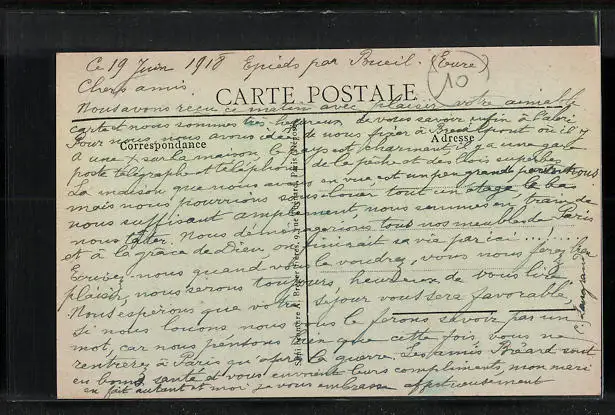 Ce 19 Juin 1918 Epieds par Bueil. (Eure)
10
Chers amis
CARTE POSTALE
Nous avons reçu ce matin avec plaisir votre aimable
carte et nous sommes très heureux de vous savoir enfin à l'abri
Pour nous nous avons idée de nous fixer à Breuilpont où il y
Correspondance
Adresse
a une + sur la maison, le pays est charmant il y a une gare
poste télégraphe et téléphone de la pêche et des bois superbes
La maison que nous avons en vue est un peu grande pour nous
mais nous pourrions sous louer tout un étage le bas
nous suffisant amplement, nous sommes en train de
nous tâter. Nous déménagerions tous nos meubles de Paris
et à la grâce de Dieu on finirait sa vie par ici...!...
Ecrivez-nous quand vous le voudrez, vous nous ferez bien
plaisir, nous serons toujours heureux de vous lire
Nous espérons que votre séjour vous sera favorable,
si nous louons nous vous le ferons savoir par un
mot, car nous pensons bien que cette fois vous ne
rentrerez à Paris qu'après la guerre. Les amis Bréard sont
en bonne santé et vous envoient leurs compliments, mon mari
en fait autant et moi je vous embrasse affectueusement